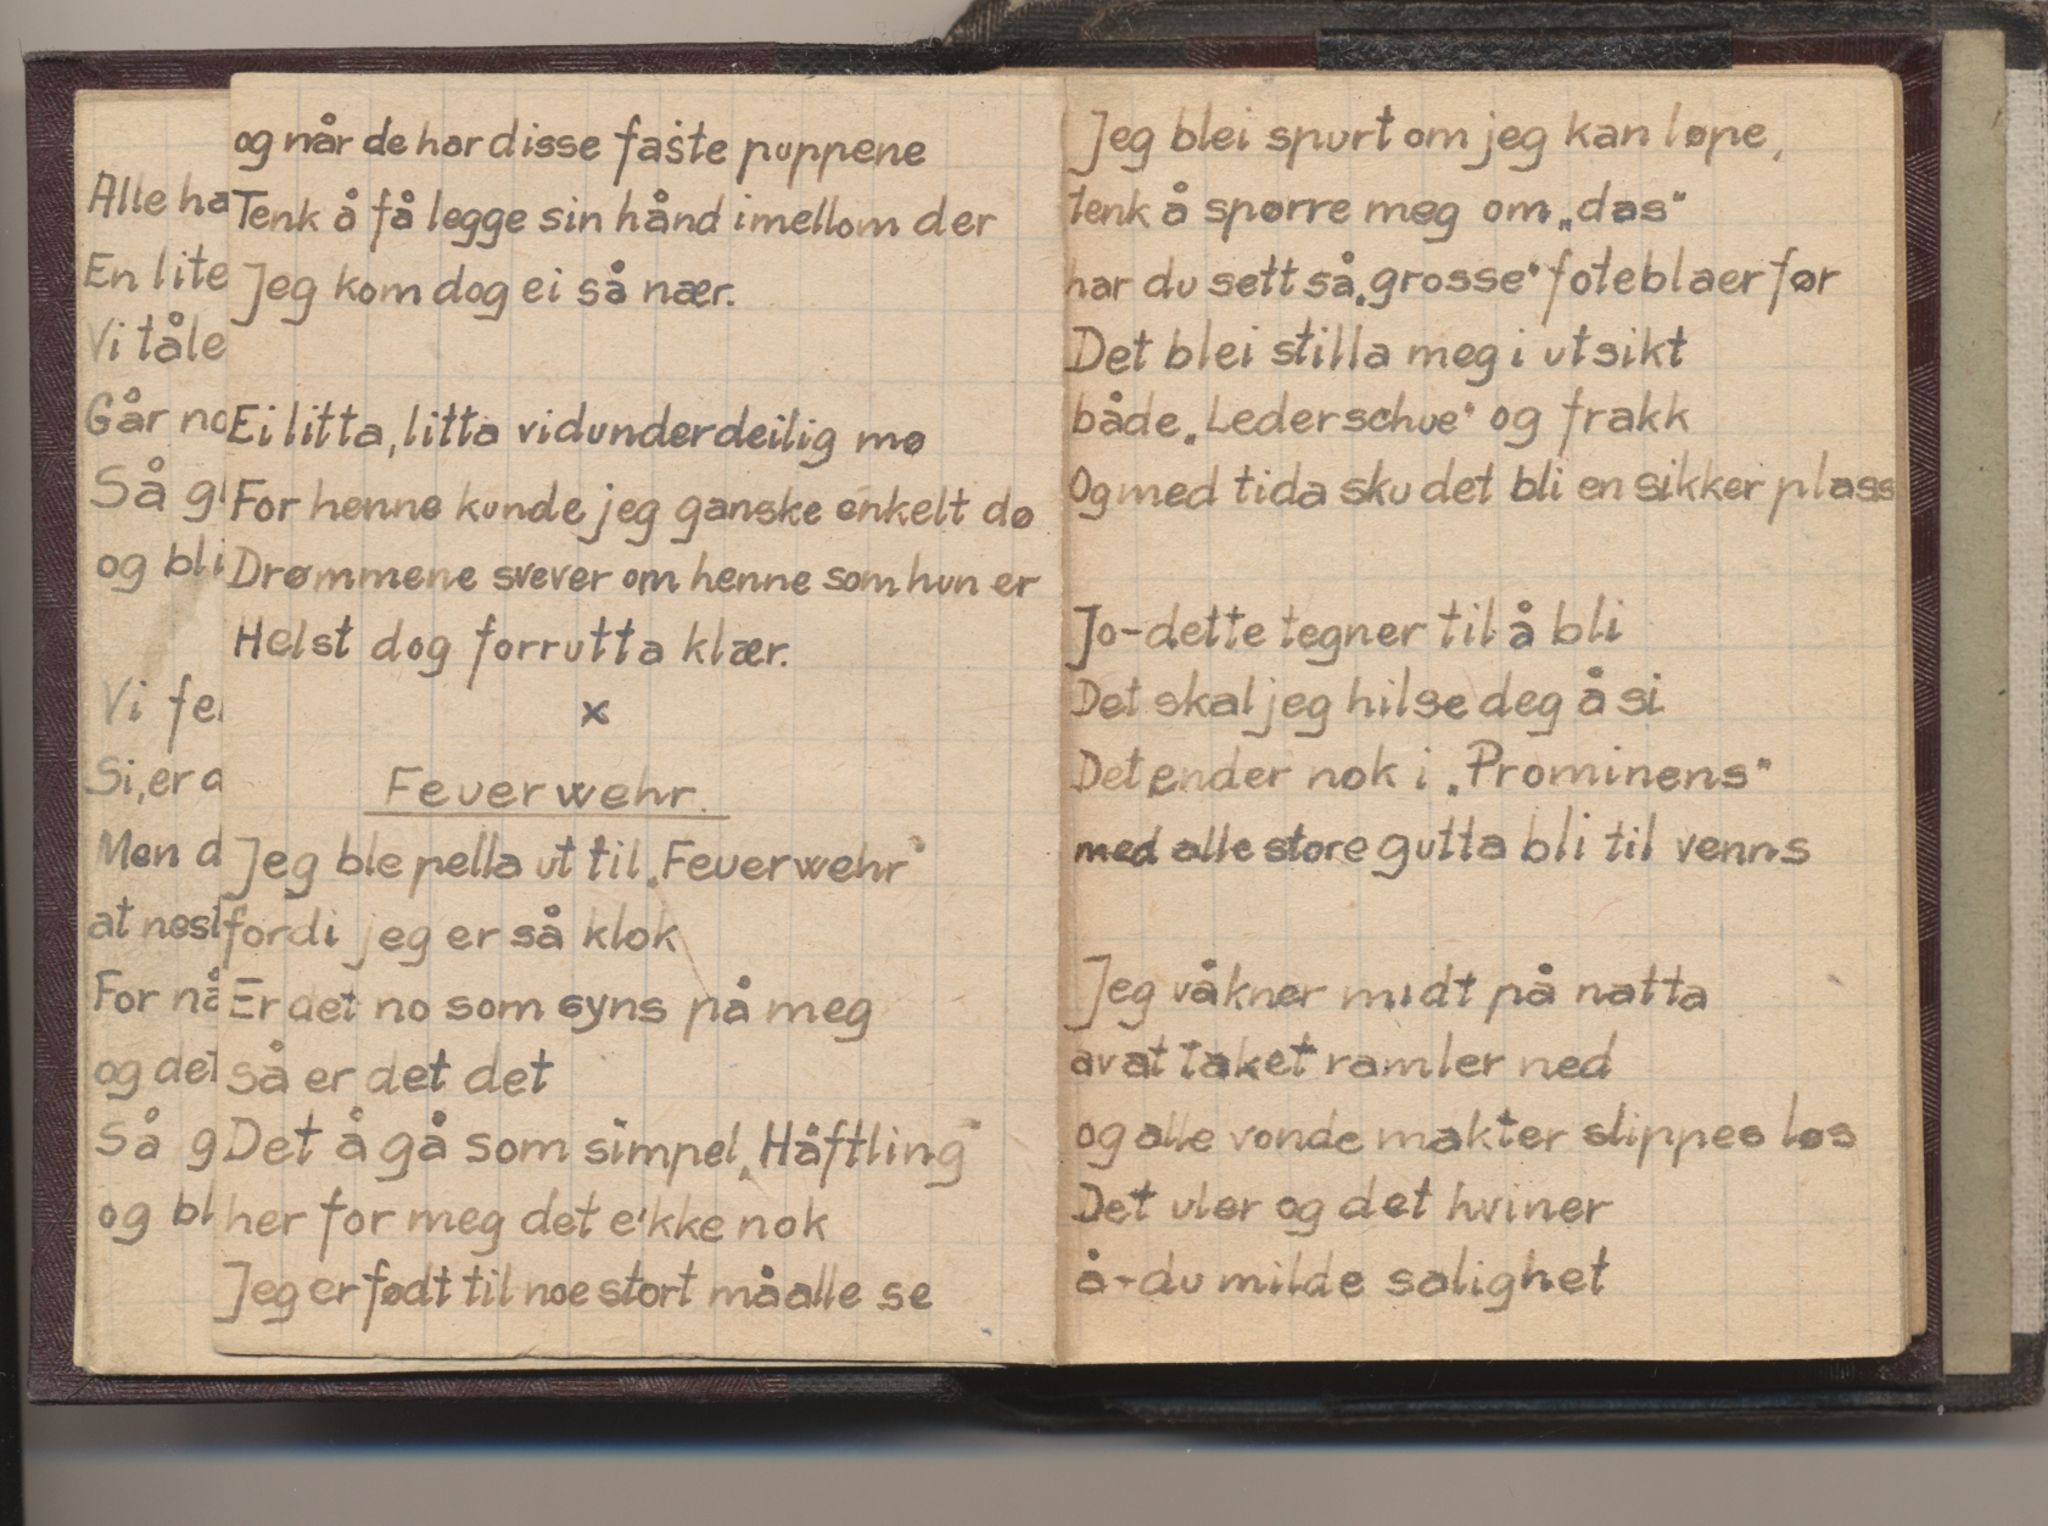 Alle ha
En lite
Vi tåle
Går no
Så gl
og bli
Vi fe
Si, er d
Men d
at nest
For nå
og det
Så g
og bl
og når de har disse faste puppene
Tenk å få legge sin hånd imellom der
Jeg kom dog ei så nær.
Ei litta, litta vidunderdeilig mø
For henne kunde jeg ganske enkelt dø
Drømmene svever om henne som hun er
Helst dog forrutta klær.
x
Feuerwehr.
Jeg ble pella ut til „Feuerwehr"
fordi jeg er så klok
Er det no som syns på meg
så er det det
Det å gå som simpel „Häftling"
her for meg det e'kke nok
Jeg er født til noe stort må alle se
Jeg blei spurt om jeg kan løpe,
tenk å spørre meg om „das"
har du sett så „grosse" foteblaer før
Det blei stilla meg i utsikt
både „Lederschue" og frakk
Og med tida sku det bli en sikker plass
Jo-dette tegner til å bli
Det skal jeg hilse deg å si
Det ender nok i „Prominens"
med alle store gutta bli til venns
Jeg våkner midt på natta
av at taket ramler ned
og alle vonde makter slippes løs
Det uler og det hviner
å-du milde salighet